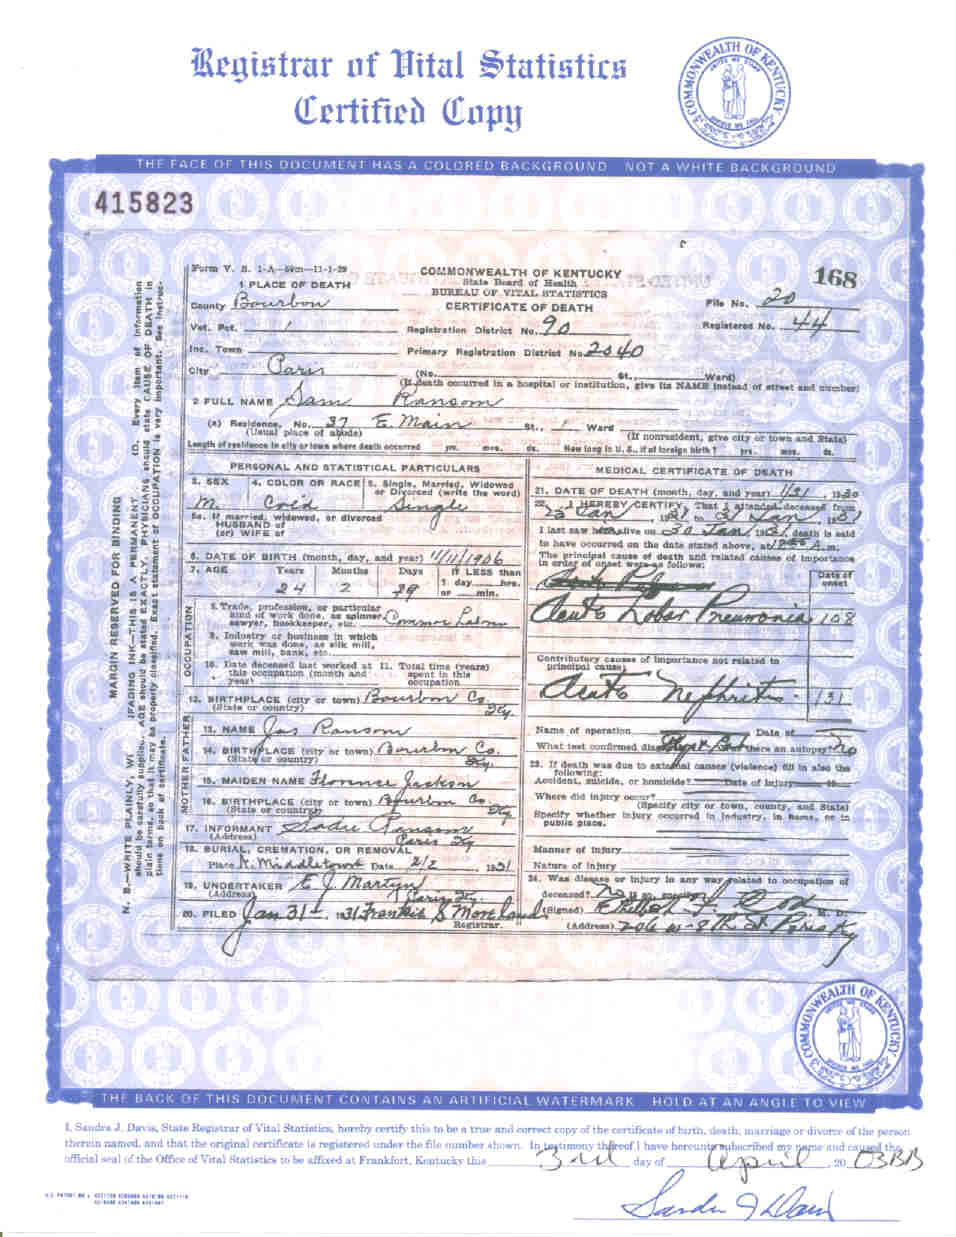 Registrar of Vital Statistics
Certified Copy
COMMONWEALTH OF KENTUCKY
THE FACE OF THIS DOCUMENT HAS A COLORED BACKGROUND NOT A WHITE BACKGROUND
415823
Form V. S. 1-A
1 PLACE OF DEATH
COMMONWEALTH OF KENTUCKY
State Board of Health
BUREAU OF VITAL STATISTICS
CERTIFICATE OF DEATH
168
County Bourbon
File No. 20
Vot. Pct. 1
Registration District No. 90
Registered No. 44
Inc. Town
Primary Registration District No. 2040
City Paris
(No. St., Ward)
(If death occurred in a hospital or institution, give its NAME instead of street and number)
2 FULL NAME Sam Ransom
(a) Residence, No. 37 E. Main St., 1 Ward
(Usual place of abode)
(If nonresident, give city or town and State)
Length of residence in city or town where death occurred yrs. mos. ds. How long in U. S., if of foreign birth? yrs. mos. ds.
PERSONAL AND STATISTICAL PARTICULARS
3. SEX 4. COLOR OR RACE 5. Single, Married, Widowed or Divorced (write the word)
M Col'd Single
5a. If married, widowed, or divorced
HUSBAND of
(or) WIFE of
6. DATE OF BIRTH (month, day, and year) 11/11/1906
7. AGE Years Months Days If LESS than
1 day hrs.
24 2 29 or min.
OCCUPATION
8. Trade, profession, or particular
kind of work done, as spinner,
sawyer, bookkeeper, etc. Common Labor
9. Industry or business in which
work was done, as silk mill,
saw mill, bank, etc.
10. Date deceased last worked at
this occupation (month and
year)
11. Total time (years)
spent in this
occupation
12. BIRTHPLACE (city or town) Bourbon Co.
(State or country) Ky.
FATHER
13. NAME Jas Ransom
14. BIRTHPLACE (city or town) Bourbon Co.
(State or country) Ky.
MOTHER
15. MAIDEN NAME Florence Jackson
16. BIRTHPLACE (city or town) Bourbon Co.
(State or country) Ky.
17. INFORMANT Sadie Ransom
(Address) Paris Ky
18. BURIAL, CREMATION, OR REMOVAL
Place N. Middletown Date 2/2 1931
19. UNDERTAKER E J. Martyn
(Address) Paris Ky.
20. FILED Jan 31st, 1931 Frankie S Moreland
Registrar.
MEDICAL CERTIFICATE OF DEATH
21. DATE OF DEATH (month, day, and year) 1/31, 1930
22. I HEREBY CERTIFY, That I attended deceased from
Jan, 1931 to Jan, 1931
I last saw him alive on 30 Jan 1931, death is said
to have occurred on the date stated above, at A.m.
The principal cause of death and related causes of importance
in order of onset were as follows:
Date of
onset
Acute Lobar Pneumonia 108
Contributory causes of importance not related to
principal cause:
Acute Nephritis 131
Name of operation Date of
What test confirmed diagnosis? Was there an autopsy? no
23. If death was due to external causes (violence) fill in also the
following:
Accident, suicide, or homicide? Date of injury 19
Where did injury occur?
(Specify city or town, county, and State)
Specify whether injury occurred in industry, in home, or in
public place.
Manner of injury
Nature of injury
24. Was disease or injury in any way related to occupation of
deceased? no If so, specify
(Signed) M. D.
(Address) 206 W-8th St Paris Ky
MARGIN RESERVED FOR BINDING
THE BACK OF THIS DOCUMENT CONTAINS AN ARTIFICIAL WATERMARK HOLD AT AN ANGLE TO VIEW
COMMONWEALTH OF KENTUCKY
I, Sandra J. Davis, State Registrar of Vital Statistics, hereby certify this to be a true and correct copy of the certificate of birth, death, marriage or divorce of the person
therein named, and that the original certificate is registered under the file number shown. In testimony thereof I have hereunto subscribed my name and caused the
official seal of the Office of Vital Statistics to be affixed at Frankfort, Kentucky this 3rd day of April, 20 03BB
Sandra J Davis